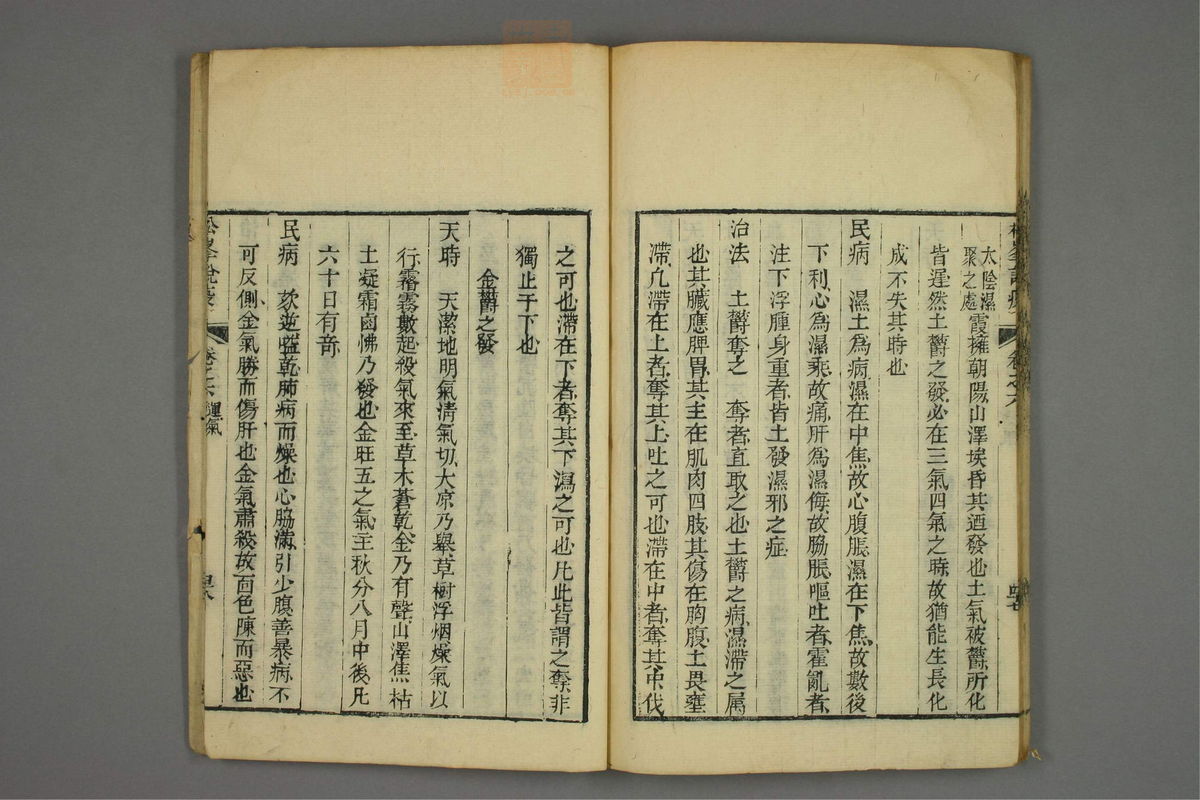 太陰濕
聚之處
霞擁朝陽山澤埃昏其迺發也土氣被鬱所化
皆遲然土鬱之發必在三氣四氣之時故猶能生長化
成不失其時也
民病　濕土為病濕在中焦故心腹脹濕在下焦故數後
下利心為濕乘故痛肝為濕侮故脇脹嘔吐者霍亂者
注下浮腫身重者皆土發濕邪之症
治法　土鬱奪之　奪者直取之也土鬱之病濕滯之属
也其臟應脾胃其主在肌肉四肢其傷在胸腹土畏壅
滯凢滯在上者奪其上吐之可也滯在中者奪其中伐
之可也滯在下者奪其下瀉之可也凡此皆謂之奪非
獨止于下也
金鬱之發
天時　天潔地明氣清氣切大凉乃舉草樹浮烟燥氣以
行霿霧數起殺氣來至草木蒼乾金乃有聲山澤焦枯
土凝霜鹵怫乃發也金旺五之氣主秋分八月中後凡
六十日有竒
民病　欬逆嗌乾肺病而燥也心脇滿引少腹善暴病不
可反側金氣勝而傷肝也金氣肅殺故面色陳而惡也
松峯說疫
卷之六
運氣